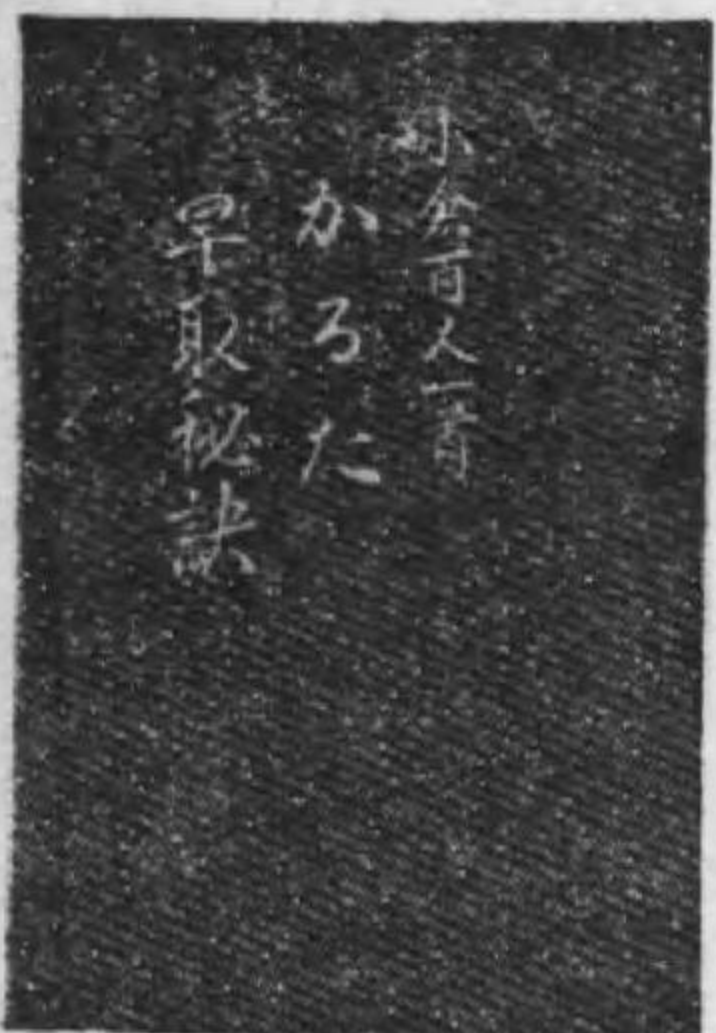 小倉百人一首
かるた
早取秘訣